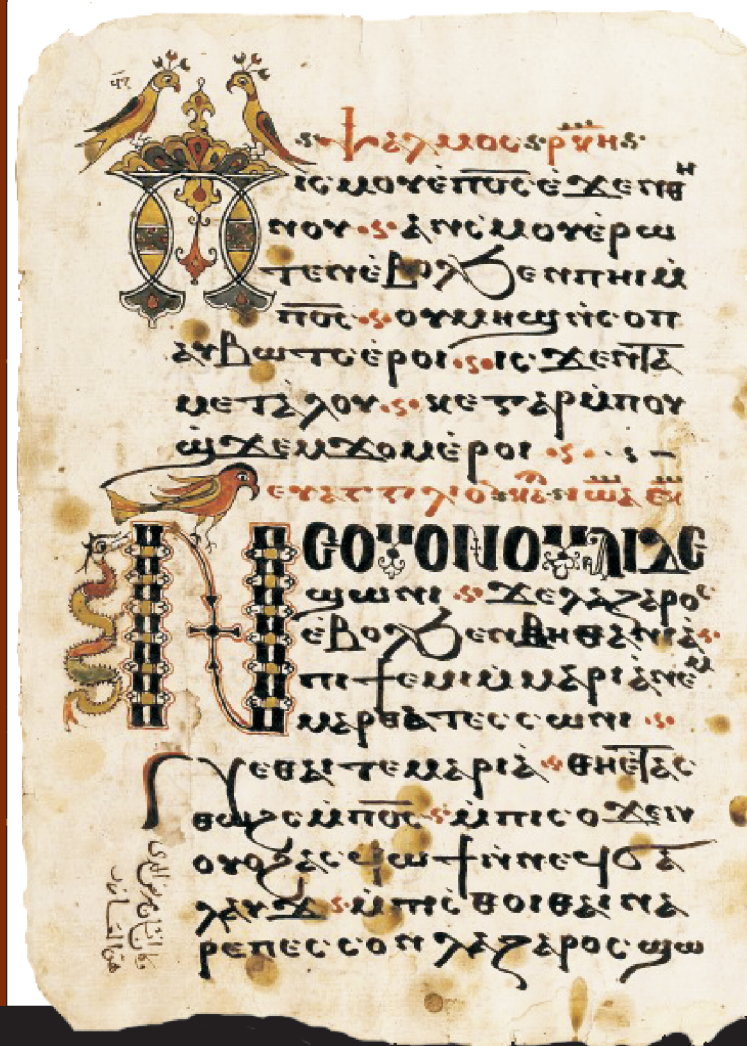 ⲯⲁⲗⲙⲟⲥ ⲣⲕⲏ
Ⲡⲓⲥⲙⲟⲩ ⲉ̀ⲡϭ̅ⲥ̅ ⲉ̀ϫⲉⲛⲑⲏ
ⲛⲟⲩ ⲁ̀ⲛⲥⲙⲟⲩ ⲉ̀ⲣⲱ
ⲧⲉⲛ ⲉ̀ⲃⲟⲗϧⲉⲛ ⲡⲏⲓ ⲙ̀
ⲡϭ̅ⲥ̅ ⲟⲩⲙⲏϣ ⲛ̀ⲥⲟⲡ
ⲁⲩⲃⲱⲧⲥ ⲉ̀ⲣⲟⲓ ⲓⲥϫⲉⲛ ⲧⲁ
ⲙⲉⲧⲁ̀ⲗⲟⲩ ⲕⲉ ⲅⲁⲣ ⲙ̀ⲡⲟⲩ
ϣϫⲉⲙϫⲟⲙ ⲉ̀ⲣⲟⲓ
Ⲛⲉⲟⲩⲟⲛ ⲟⲩⲁⲓ ⲇⲉ
ϣⲱⲛⲓ ϫⲉ ⲗⲁⲍⲁⲣⲟⲥ
ⲉ̀ⲃⲟⲗϧⲉⲛ ⲃⲏⲑⲁⲛⲓⲁ̀
ⲡⲓϯⲙⲓ ⲙ̀ⲙⲁⲣⲓⲁ̀ ⲛⲉⲙ
ⲙⲁⲣⲑⲁ ⲧⲉⲥⲥⲱⲛⲓ
Ⲛⲉ ⲑⲁⲓ ⲧⲉ ⲙⲁⲣⲓⲁ̀ ⲑⲏⲉ̀ⲧⲁⲥ
ⲑⲱϩⲥ ⲙ̀ⲡϭ̅ⲥ̅ ⲙ̀ⲡⲓⲥⲟϫⲉⲛ
ⲟⲩⲟϩ ⲁⲥϥⲱϯ ⲛ̀ⲛⲉϥϭⲁ
ⲗⲁⲩϫ ⲙ̀ⲡⲓϥⲱⲓ ⲑⲁⲓ ⲛⲁ
ⲣⲉ ⲡⲉⲥⲥⲟⲛ ⲗⲁⲍⲁⲣⲟⲥ ϣⲱ